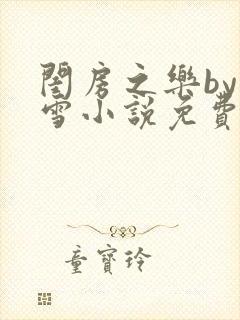 閨房之樂by
雪小說免費
童寶玲